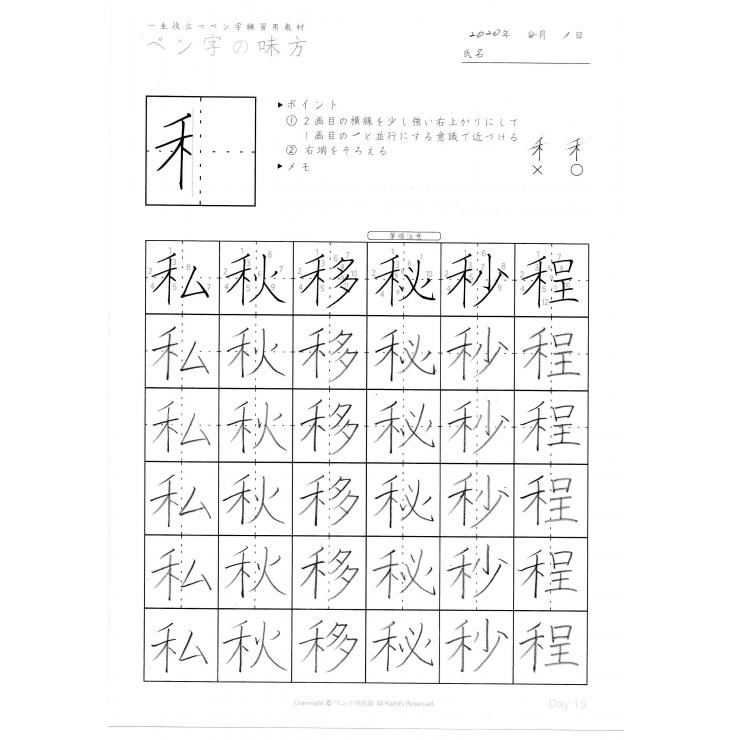 一生役立つペン字練習用教材
ペン字の味方
2020年 8月 1日
氏名
禾
▶ポイント
① 2画目の横線を少し強い右上がりにして
1画目の㇒と並行にする意識で近づける
② 右端をそろえる
▶メモ
禾 禾
× ○
筆順注意
私 秋 移 秘 秒 程
私 秋 移 秘 秒 程
私 秋 移 秘 秒 程
私 秋 移 秘 秒 程
私 秋 移 秘 秒 程
私 秋 移 秘 秒 程
Day 15